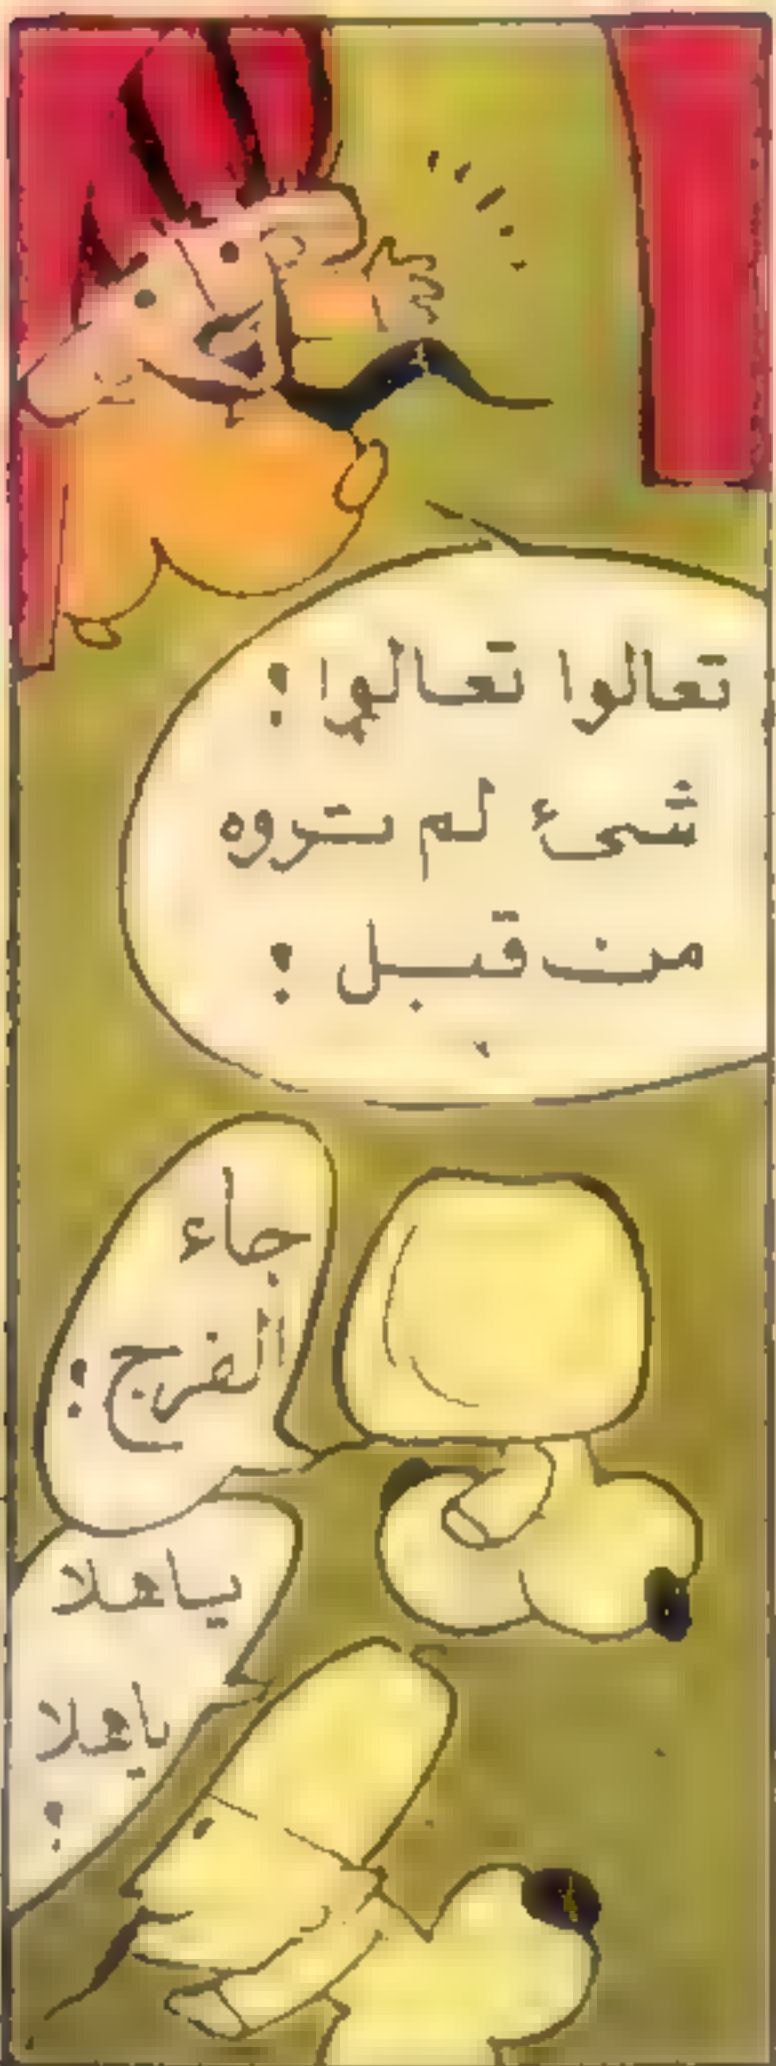 تعالوا تعالوا !
شىء لم تروه
من قبل !
جاء
الفرج !
ياهلا
ياهلا
!